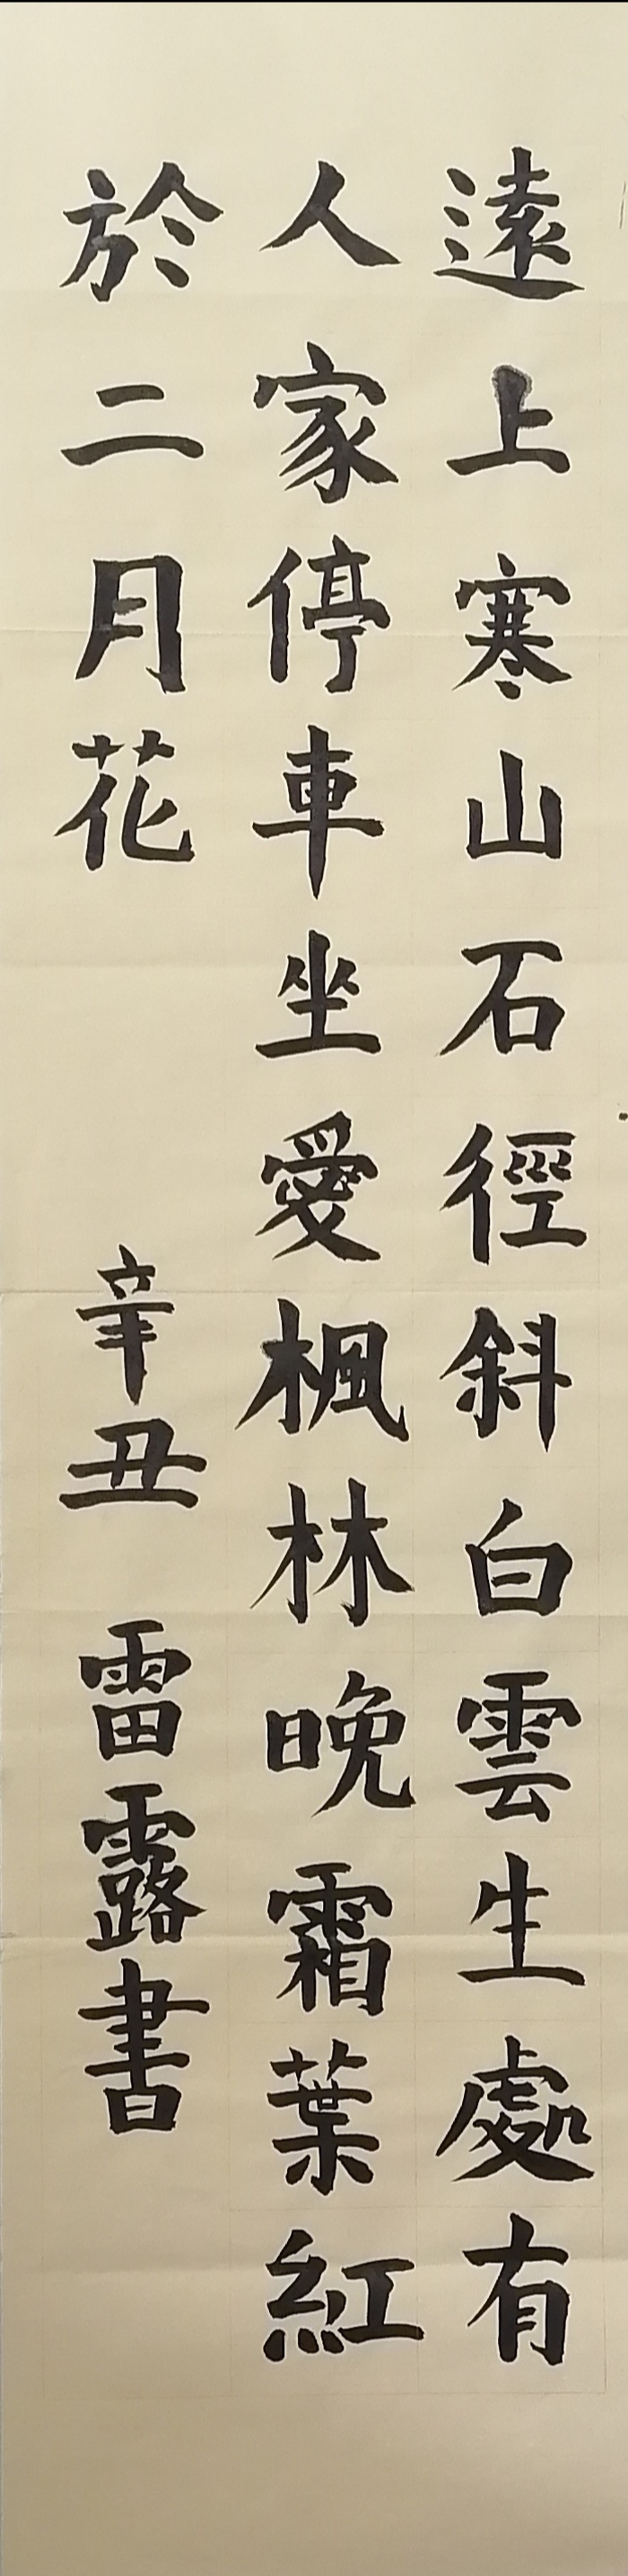 遠上寒山石徑斜白雲生處有
人家停車坐愛楓林晚霜葉紅
於二月花 辛丑 雷露書